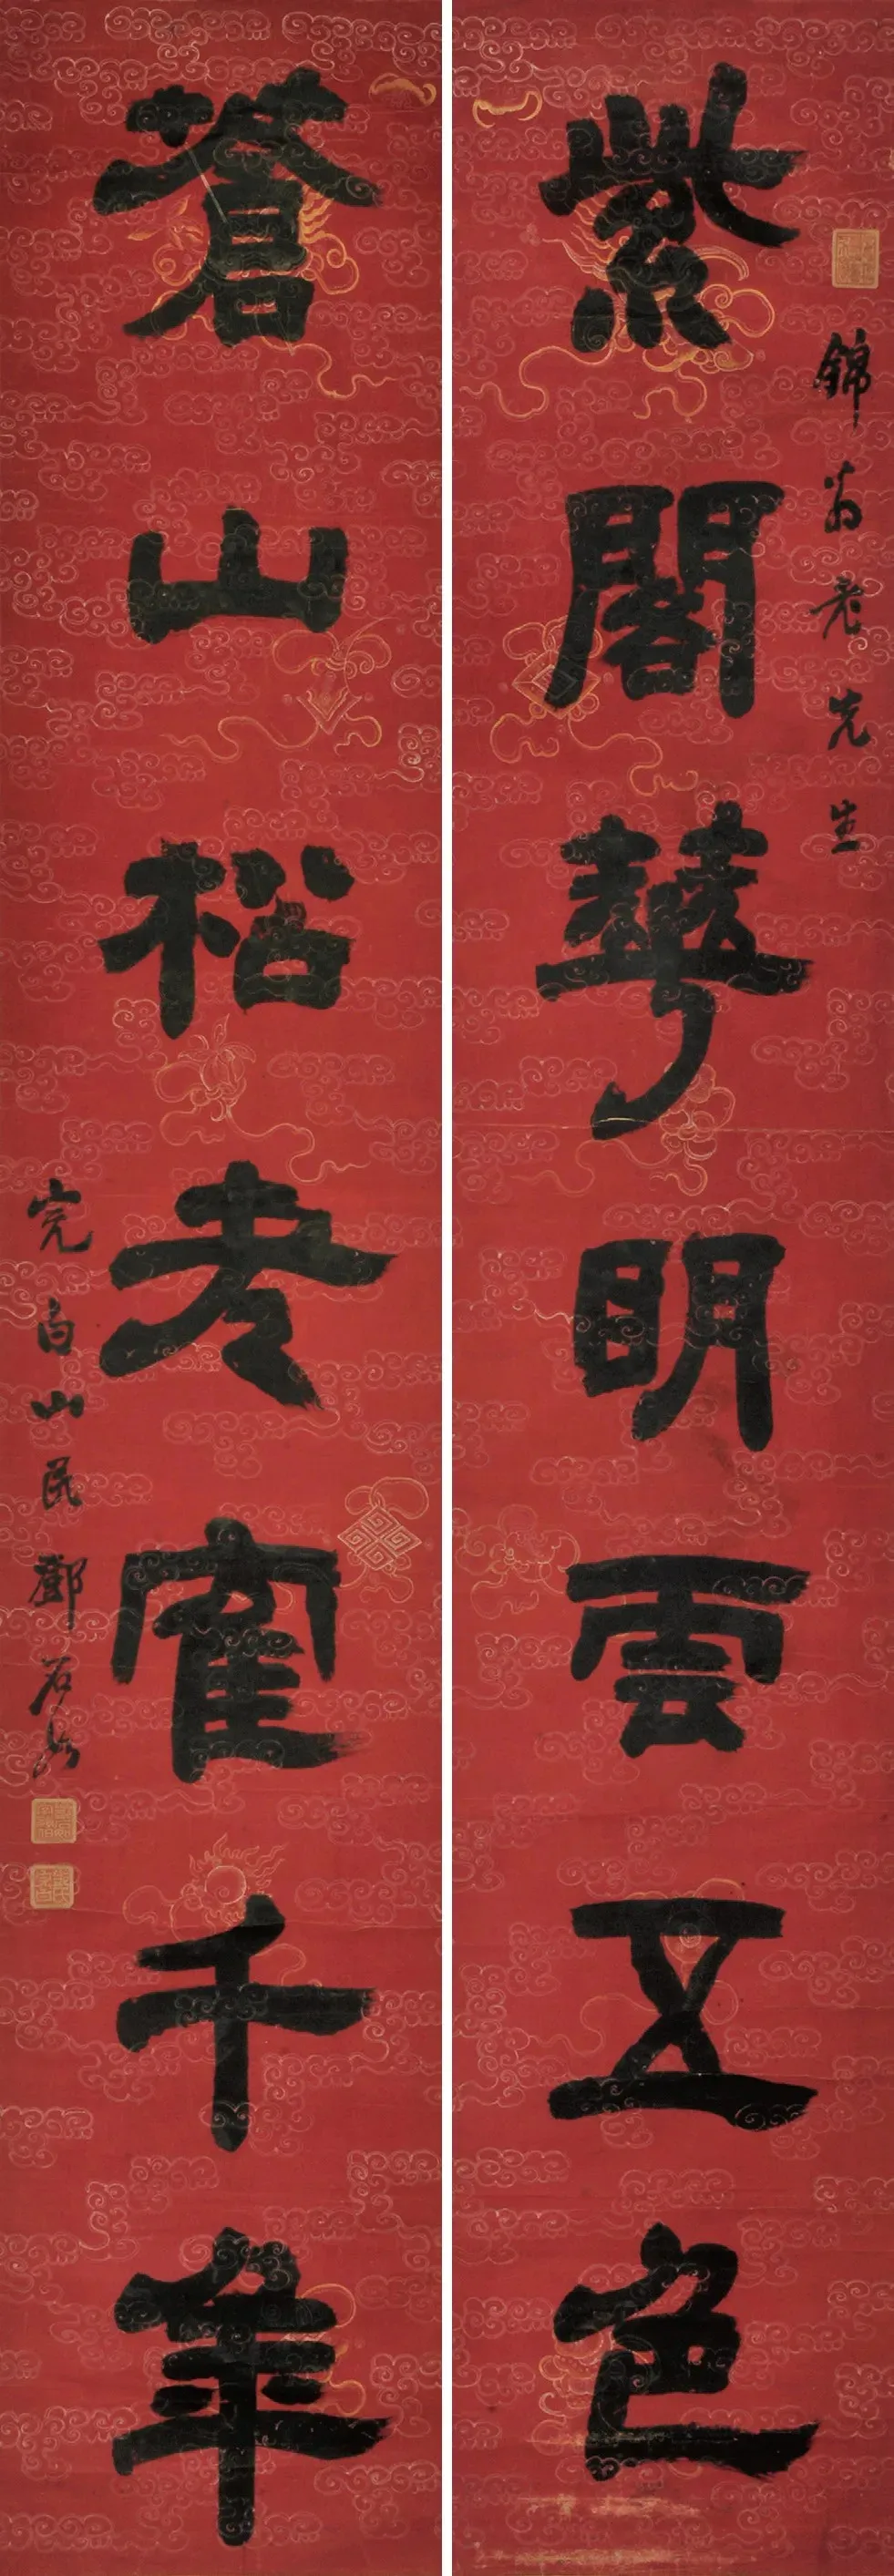 錦翁老先生
紫閣華明雲五色
蒼山松老寉千年
完白山民鄧石如